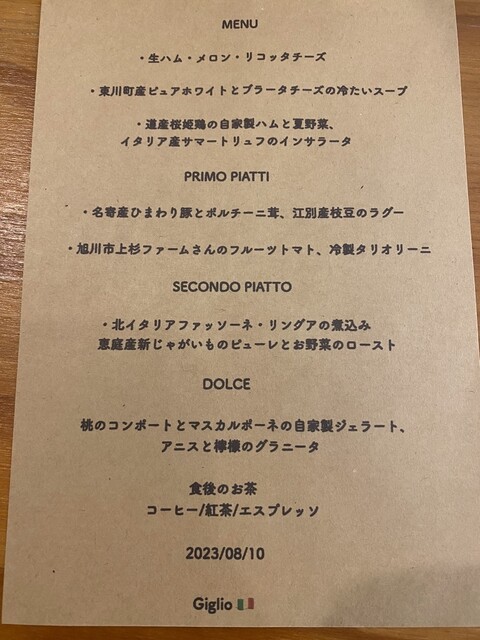 MENU
・生ハム・メロン・リコッタチーズ
・東川町産ピュアホワイトとブラータチーズの冷たいスープ
・道産桜姫鶏の自家製ハムと夏野菜、
イタリア産サマートリュフのインサラータ
PRIMO PIATTI
・名寄産ひまわり豚とポルチーニ茸、江別産枝豆のラグー
・旭川市上杉ファームさんのフルーツトマト、冷製タリオリーニ
SECONDO PIATTO
・北イタリアファッソーネ・リングアの煮込み
恵庭産新じゃがいものピューレとお野菜のロースト
DOLCE
桃のコンポートとマスカルポーネの自家製ジェラート、
アニスと檸檬のグラニータ
食後のお茶
コーヒー/紅茶/エスプレッソ
2023/08/10
Giglio 🇮🇹